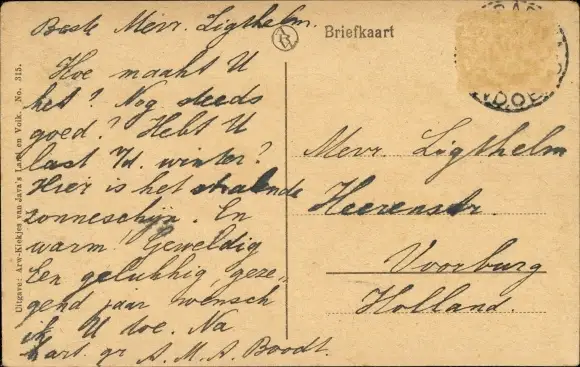 Beste Mevr. Ligthelm.
Hoe maakt U
het? Nog steeds
goed? Hebt U
last v/d. winter?
Hier is het stralende
zonneschijn. En
warm! Geweldig
Een gelukkig, geze-
gend jaar wensch
ik U toe. Na
hart. gr. A. M. A. Boodt.
Briefkaart
Mevr. Ligthelm
Heerenstr.
Voorburg
Holland.
Uitgave: Arw-Kiekjes van Java's Land en Volk. No. 315.